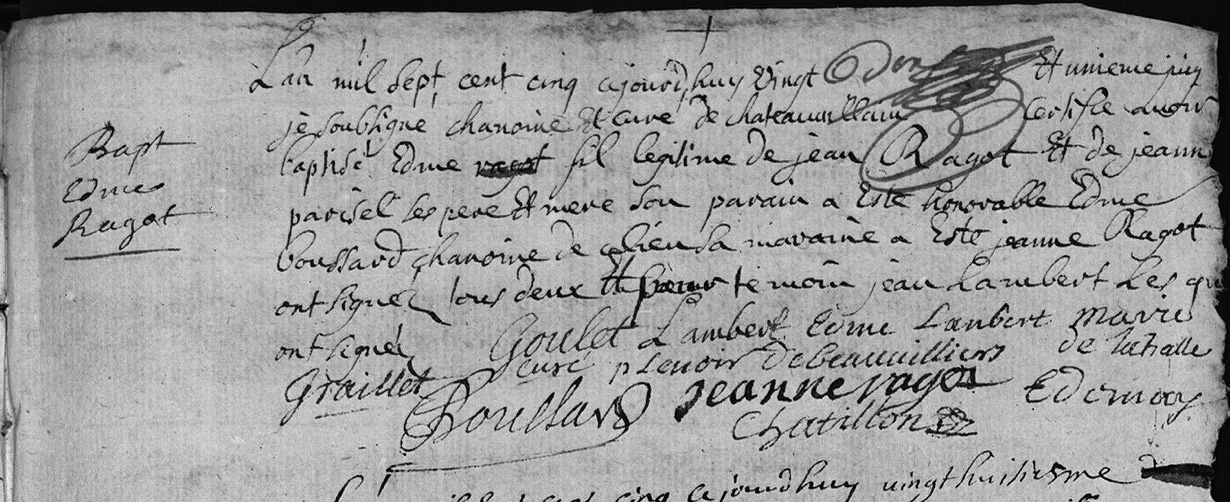 L'an mil sept cent cinq ajourd'huy vingt Et unieme juin
je soubsigne chanoine Et curé de chateauvillain Certifie avoir
Bapt
baptisé Edme ragot fil legitime de jean Ragot Et de jeanne
Edme
parisel ses pere Et mere son parain a Esté honorable Edme
Ragot
boussard chanoine de ce lieu sa maraine a Esté jeanne Ragot
ont signez tous deux Et pour temoin jean Lambert Les qu
ont signez Goulet Lambert Edme Lanbert Marie
curé p Lenoir Debeauvilliers de
Graillet Boussard Jeanne ragot
Chatillon
cinq ajourdhuy vingt huitiesme